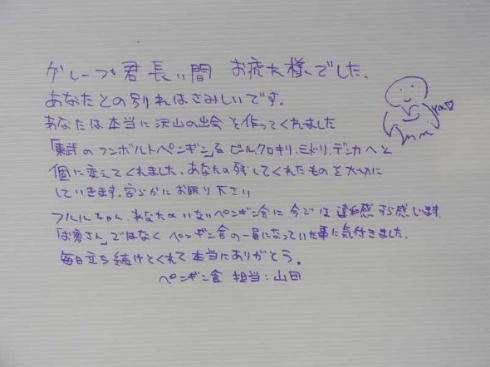 グレープ君 長い間 お疲れ様でした。
あなたとの別れはさみしいです。
あなたは本当に沢山の出会を作ってくれました
「東武のフンボルトペンギン」を ピルクロキリ、ミドリ、デンカへと
個に変えてくれました。あなたの残してくれたものを大切に
していきます。安らかにお眠り下さい
フルルちゃん、あなたのいないペンギン舎に今では違和感すら感じます
「お客さん」ではなく ペンギン舎の一員になっていた事に気付きました。
毎日立ち続けてくれて本当にありがとう。
ペンギン舎 担当：山田